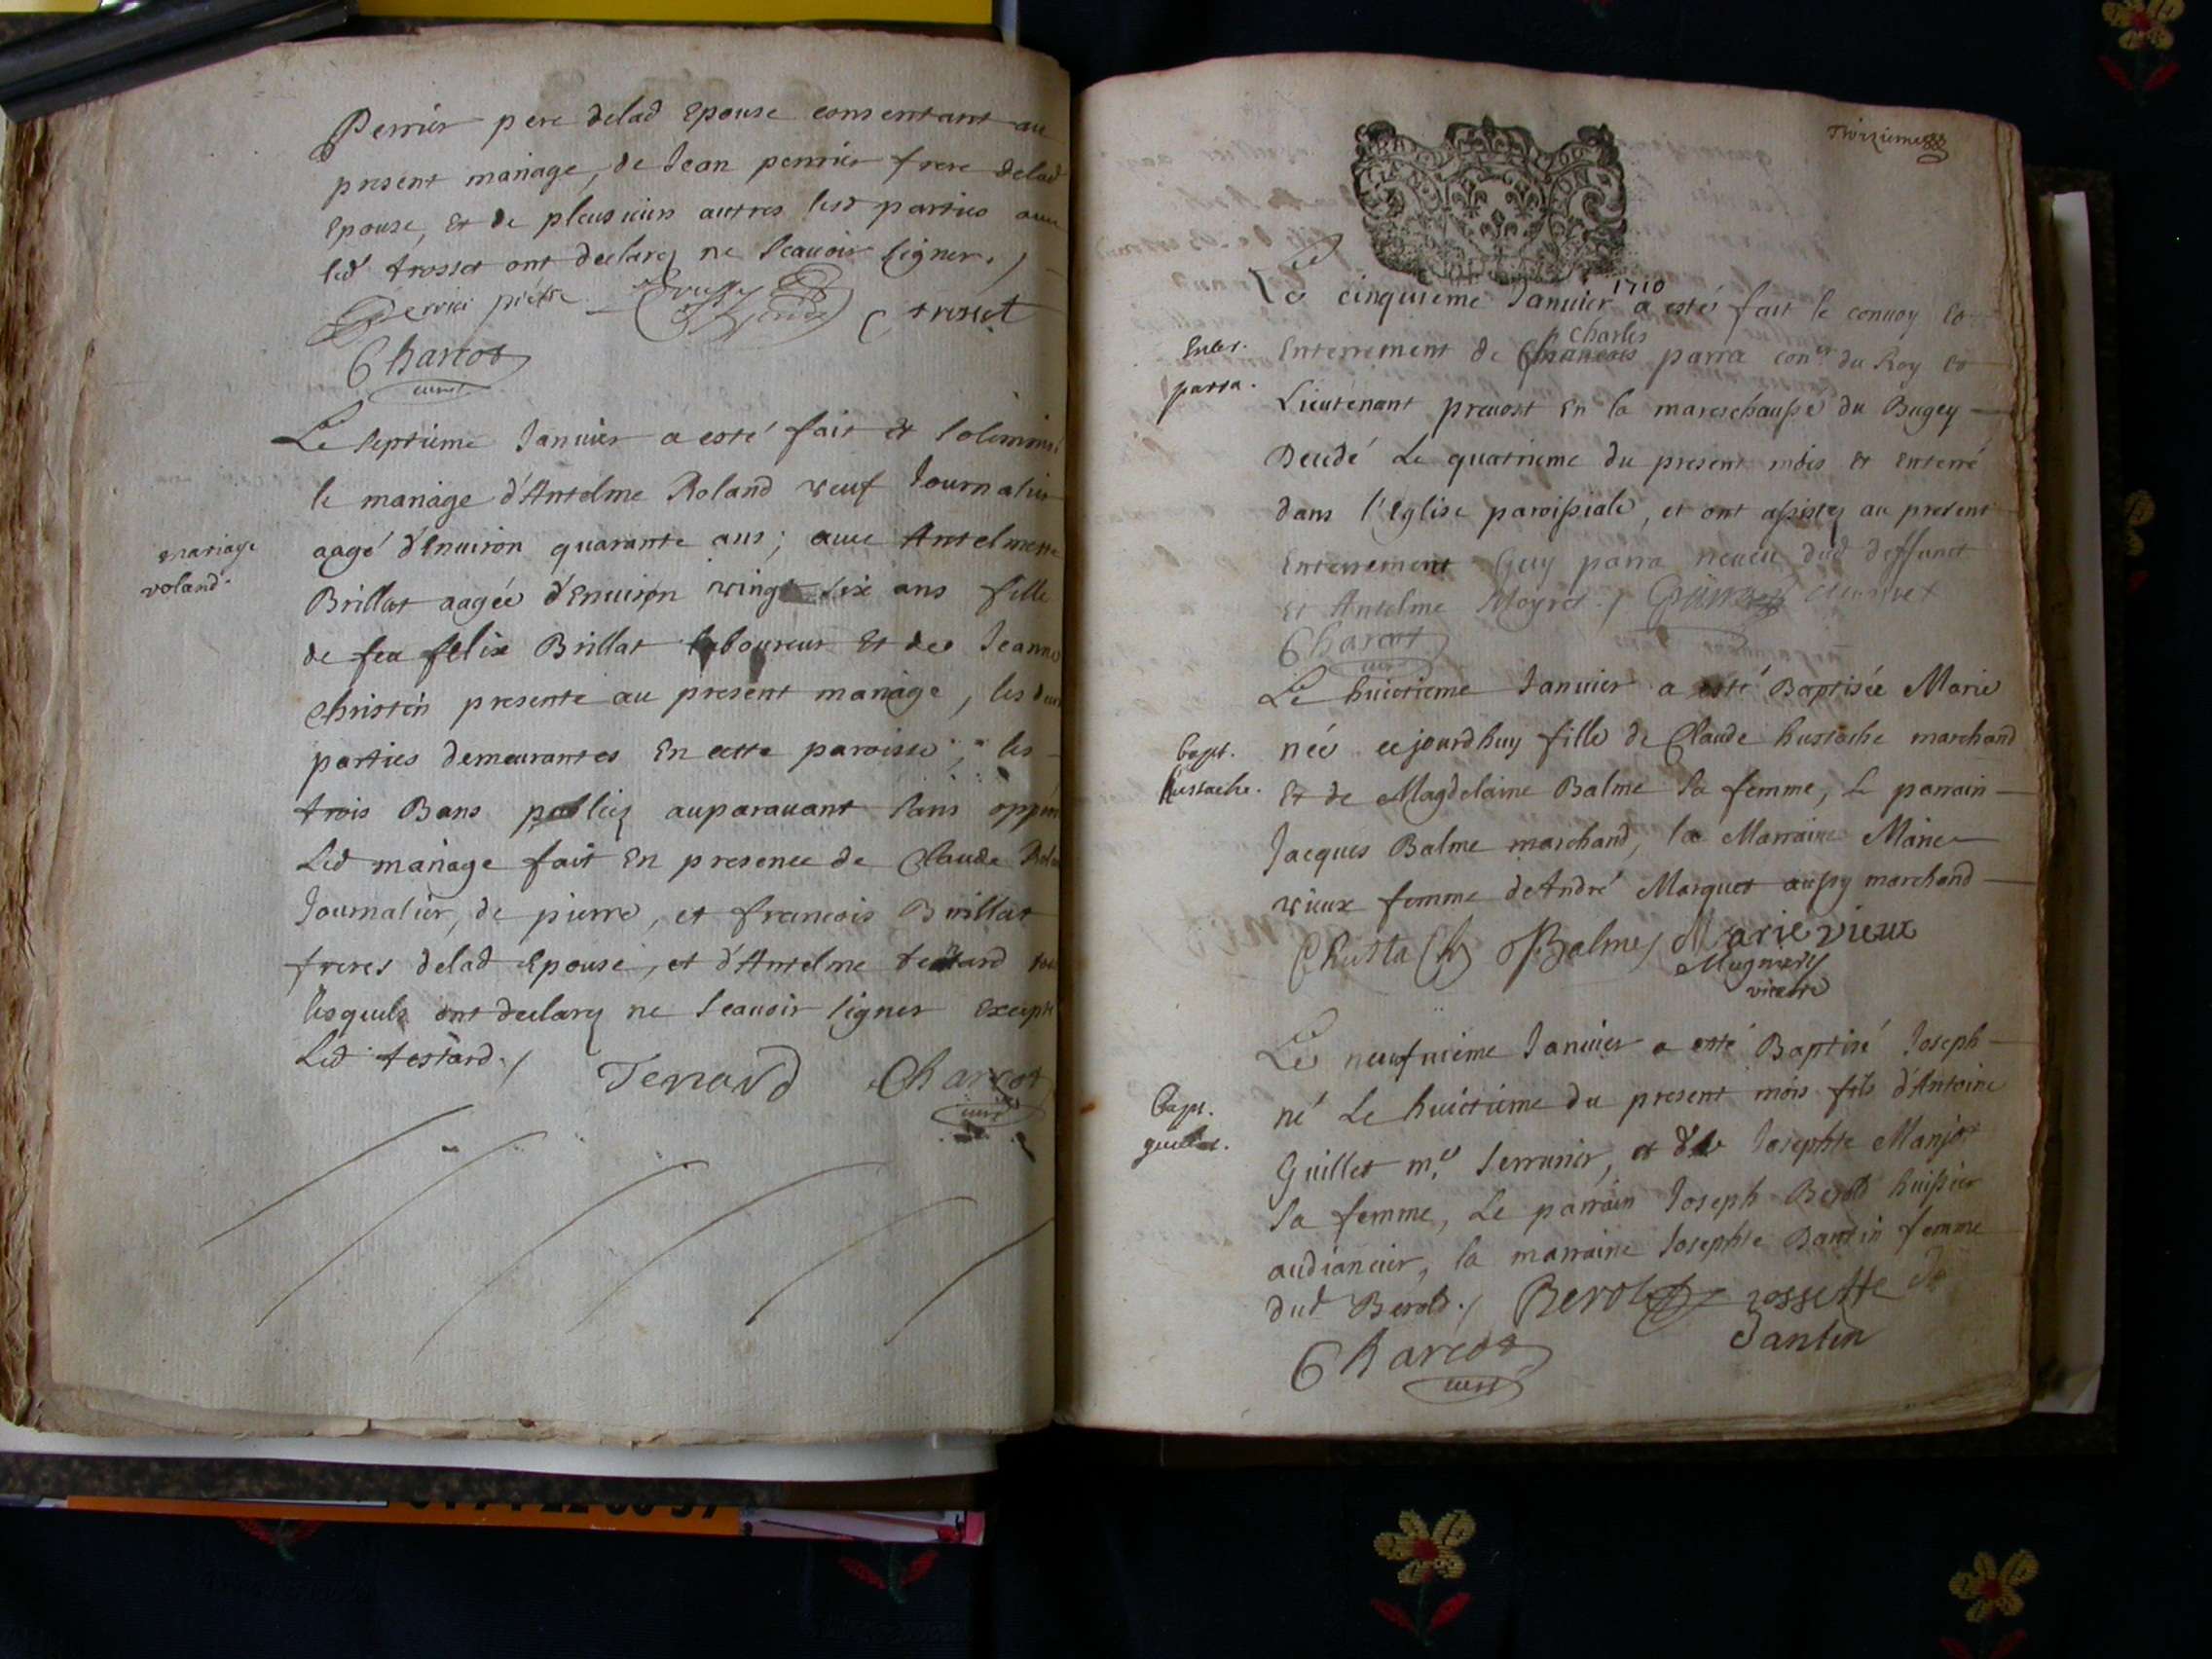 Perrier pere delad Epouse consentant au
present mariage, de Jean perrier frere delad
Epouse, Et de pleusieurs autres lesd parties avec
led trosset ont declarez ne Scavoir signer./
Perrier pretre trosset
Charcot
curé
Le septieme Janvier a esté fait et solemnis
mariage
voland
le mariage d'Antelme Roland veuf Journalier
aagé d'Environ quarante ans; avec Antelmette
Brillat aagée d'Environ vingt six ans fille
de feu felix Brillat laboureur Et de Jeanne
Christin presente au present mariage, les deux
parties demeurantes En cette paroisse; les
trois Bans publiez auparavant sans oppon
Led mariage fait En presence de Claude Rolan
Journalier, de pierre, et francois Brillat
freres delad Epouse, et d'Antelme tenard
lesquels ont declarez ne scavoir signer Excepté
Led testard./ Tenard Charcot
curé
Troizieme
1710
Le cinquieme Janvier a esté fait le convoy Et
Charles
Enter.
parra.
Enterrement de francois parra coner du Roy et
Lieutenant prevost En la mareschaussé du Bugey
Decedé Le quatrieme du present mois et Enterré
dans l'Eglise paroissiale, et ont assistez au present
Enterrement Guy parra neveu dud deffunct
Et Antelme Moyret./
Charcot
curé
Le huictieme Janvier a esté Baptisée Marie
bapt.
hustache.
née cejourdhuy fille de Claude hustache marchand
Et de Magdelaine Balme sa femme, L parrain
Jacques Balme marchand, la Marraine Marie
vieux femme d'André Marquet aussy marchand
CHusta Balme Marie vieux
vicaire
Le neufvieme Janvier a esté Baptisé Joseph
bapt.
guillet.
né Le huictieme du present mois fils d'Antoine
Guillet me serrurier, et de Josephte Manjot
sa femme, Le parrain Joseph Berold huissier
audiancier, la marraine Josephte Dantin femme
dud Berold./ Berold Jossette
Dantin
Charcot
curé